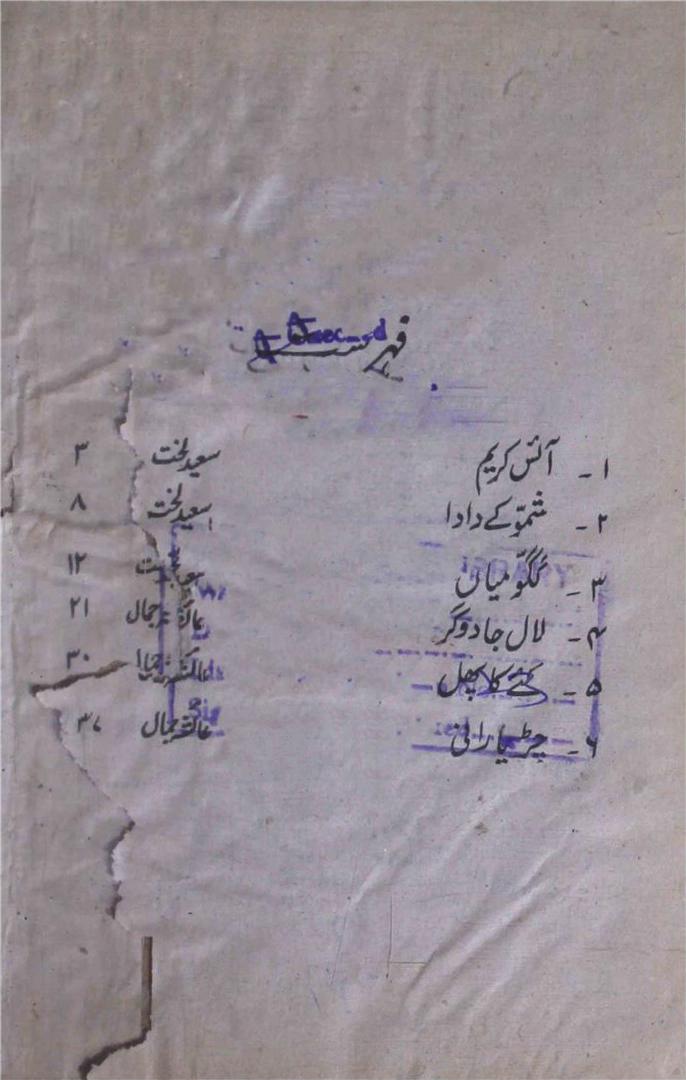 فہرست
۱ - آئس کریم سعید لخت ۳
۲ - شمّو کے دادا سعید لخت ۸
۳ - گگّو میاں ۱۲
۴ - لال جادوگر عائشہ جمال ۲۱
۵ - کئے کا پھل عائشہ جمال ۳۰
۶ - چڑیا رانی عائشہ جمال ۳۷